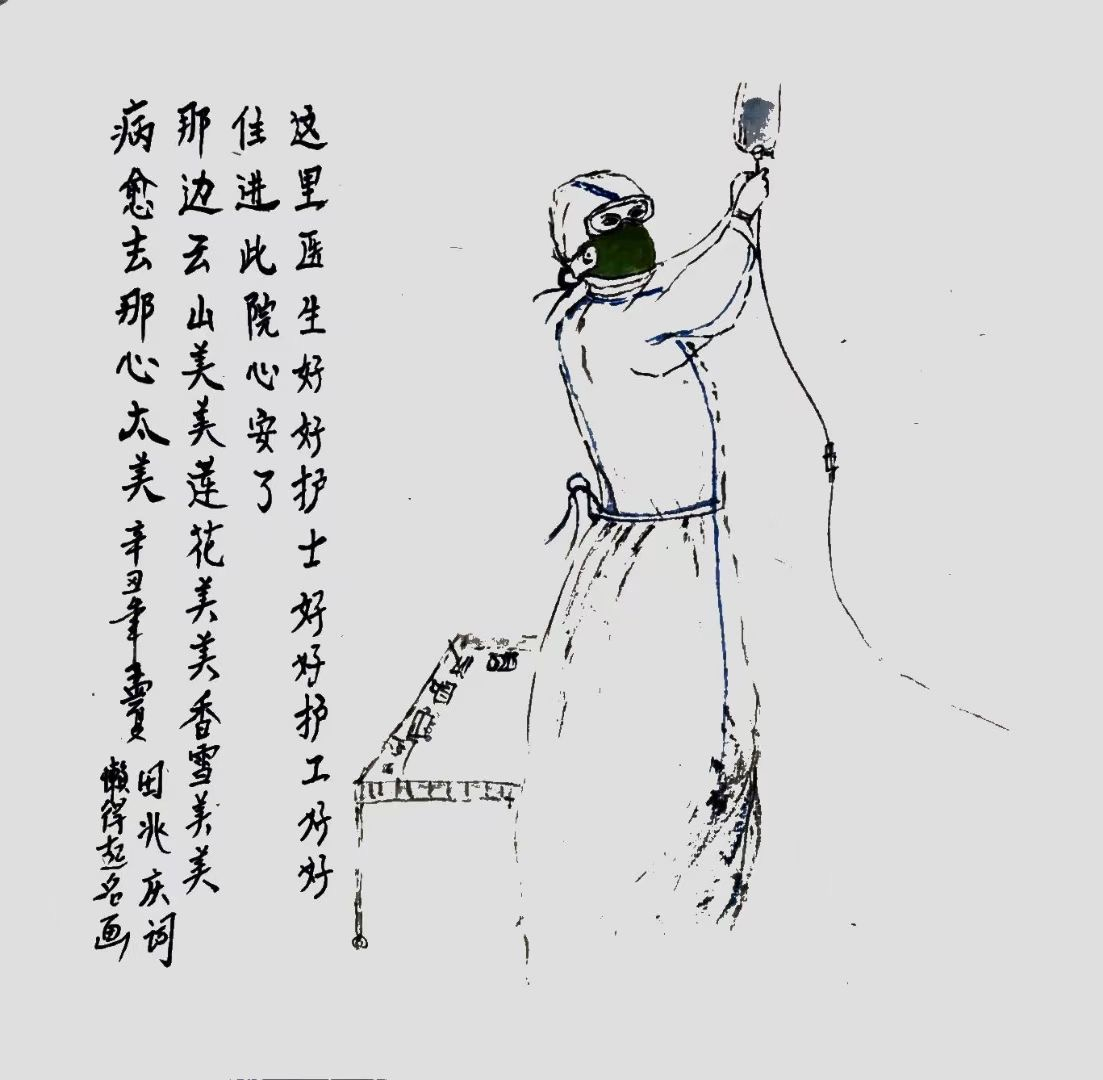 这里医生好好护士好好护工好好
住进此院心安了
那边云山美美莲花美美香雪美美
病愈去那心太美 辛丑年
田兆庆词
懒得起名画